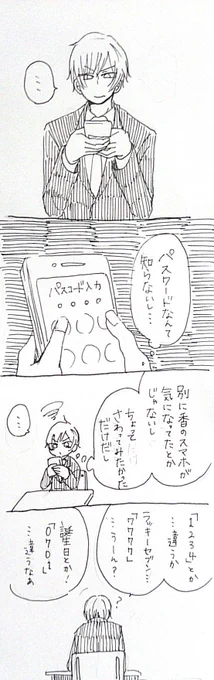 …
パスワードなんて
知らないし…
パスコード入力
別に香のスマホが
気になってたとか
じゃないし
ちょっと
さわってみたかった
だけだし
…
「1234」とか
…違うか
ラッキーセブン…
「7777」
…うーん?
誕生日とか!
「0701」
…違うなあ
?